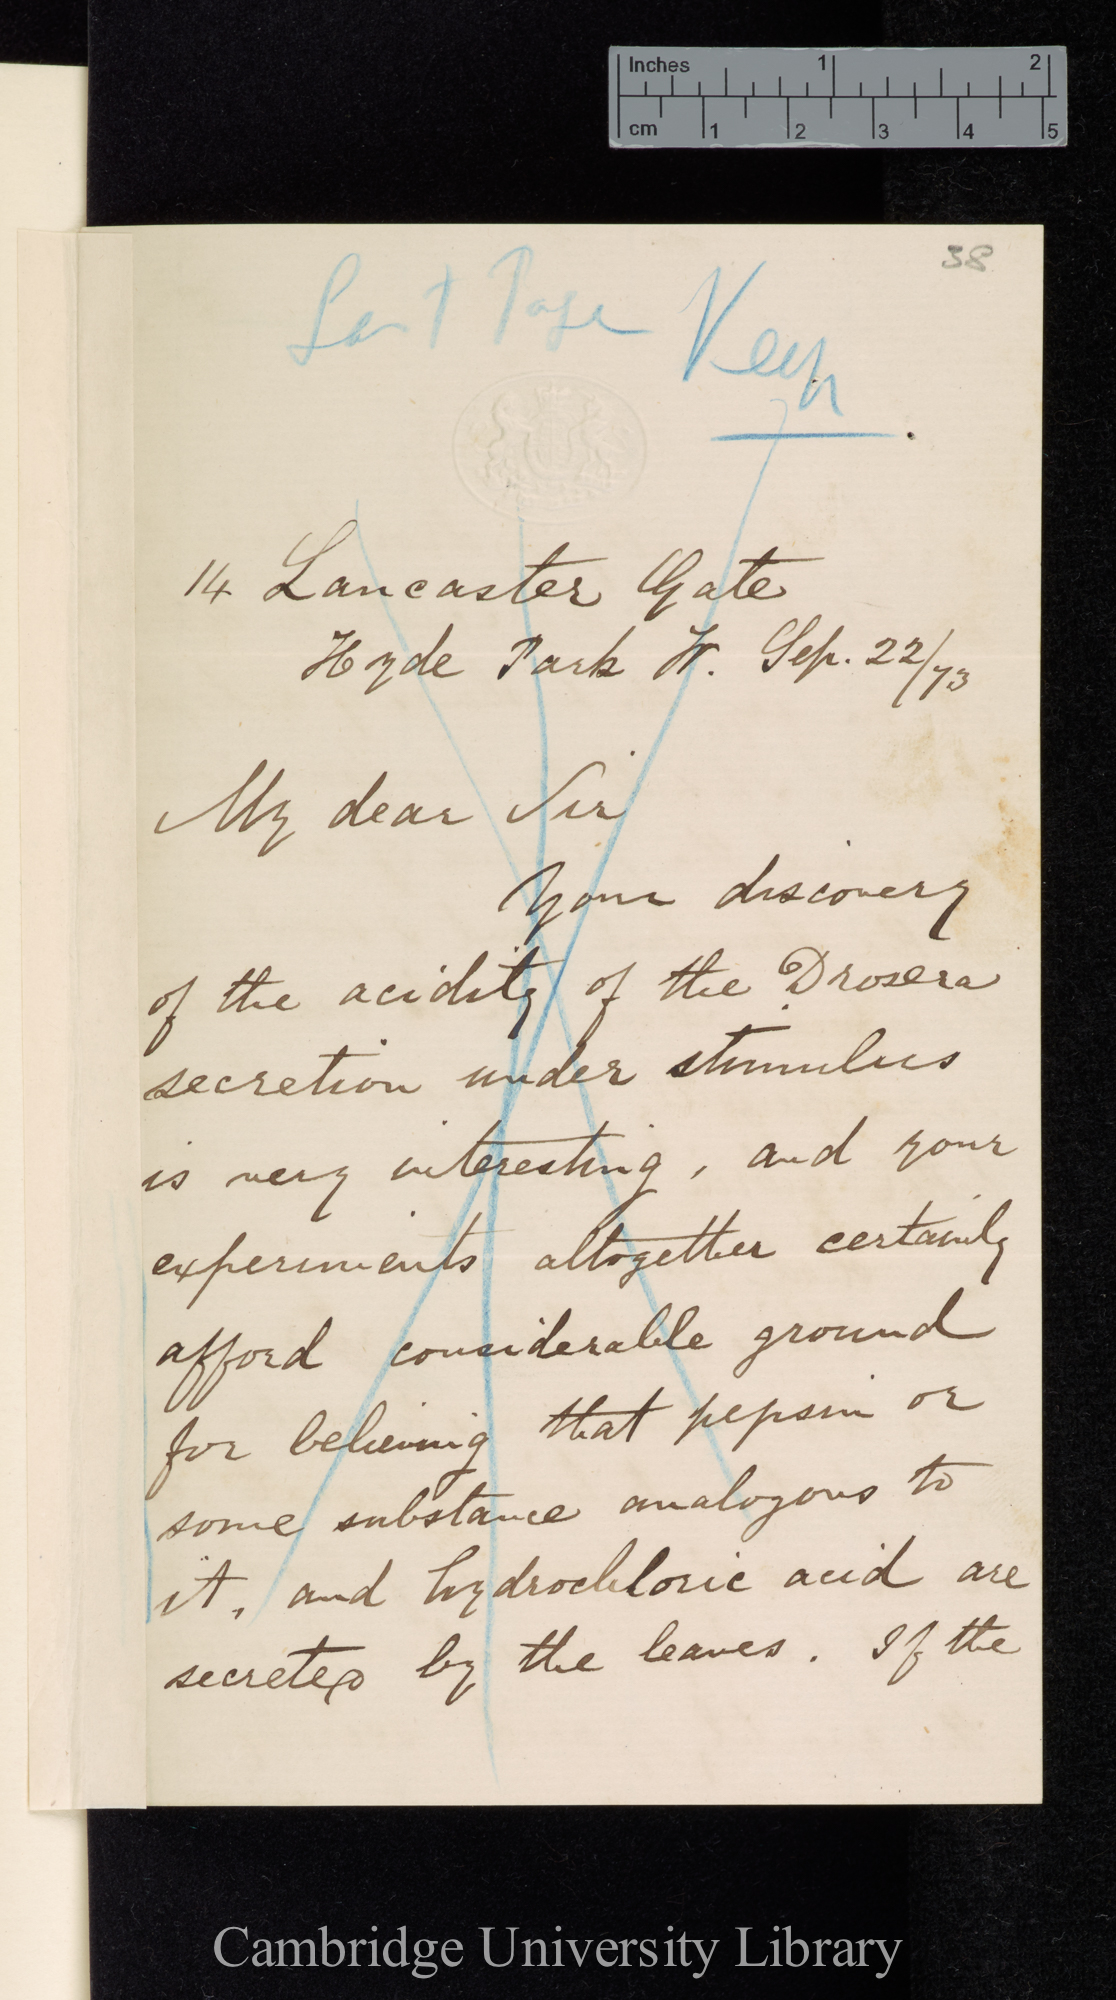 Inches 1 2
cm 1 2 3 4 5
38
Last Page Keep
14 Lancaster Gate
Hyde Park W. Sep. 22/73
My dear Sir
Your discovery
of the acidity of the Drosera
secretion under stimulus
is very interesting, and your
experiments altogether certainly
afford considerable ground
for believing that pepsin or
some substance analogous to
it, and hydrochloric acid are
secreted by the leaves. If the
Cambridge University Library